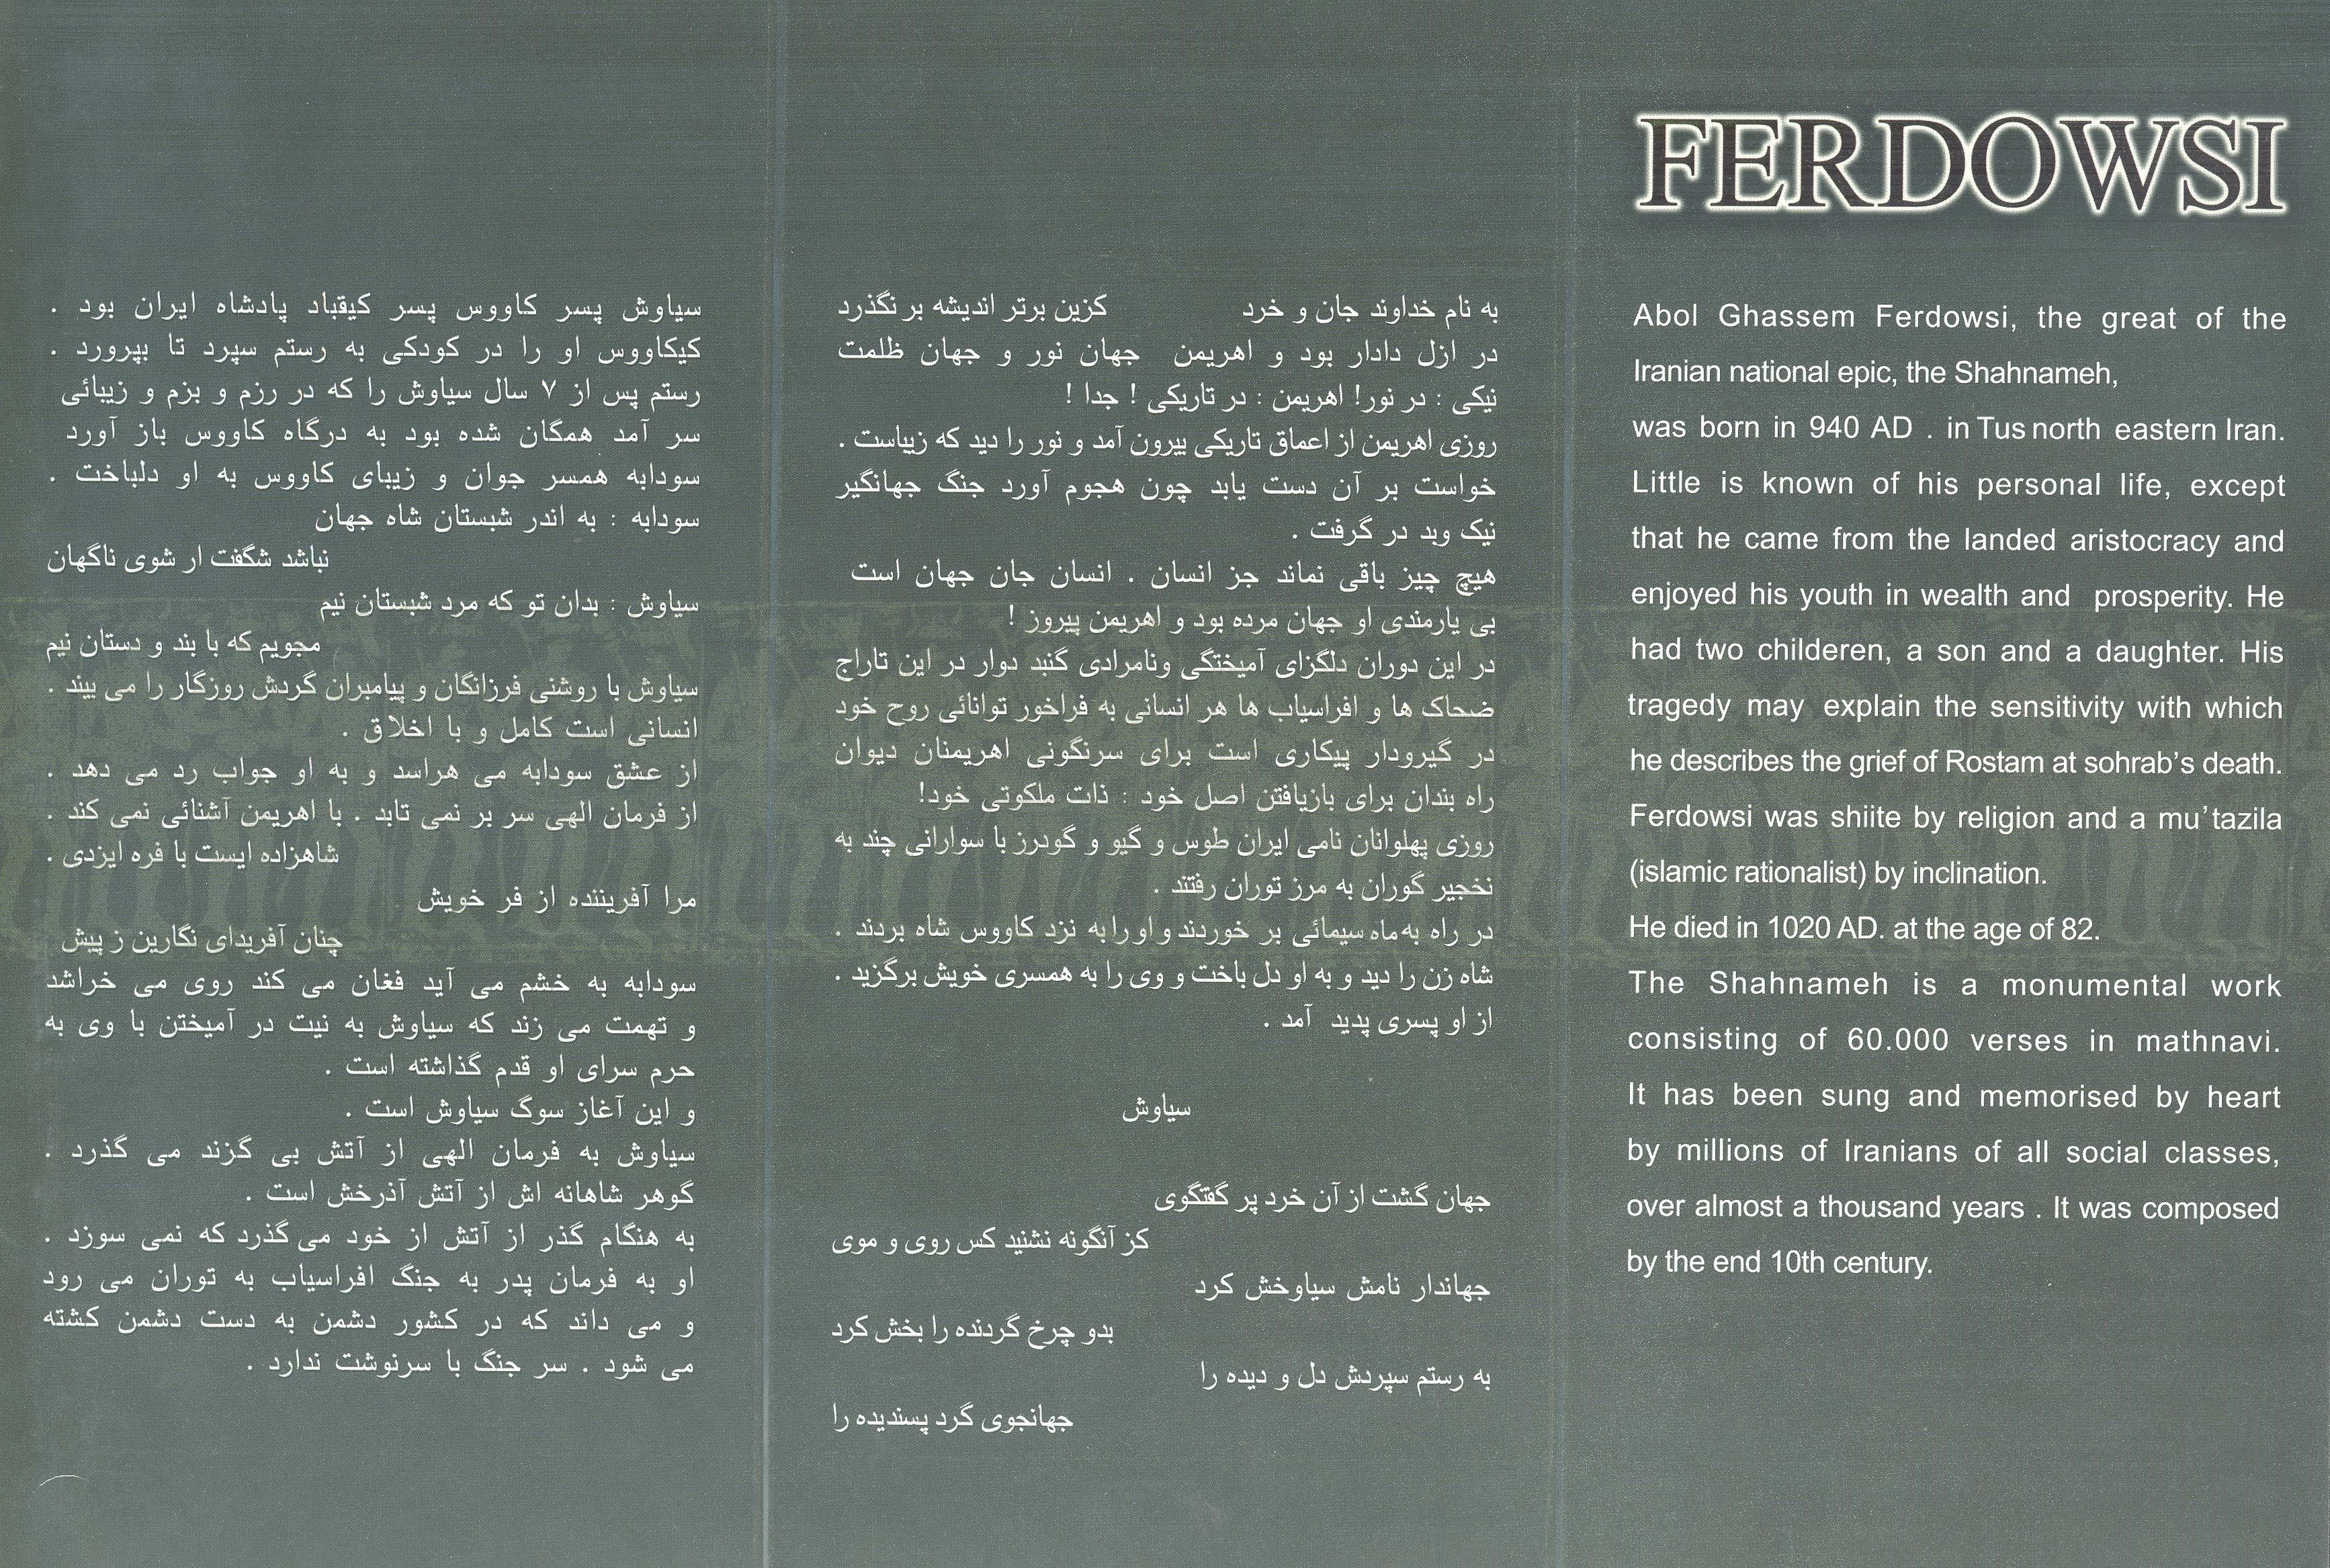 FERDOWSI
Abol Ghassem Ferdowsi, the great of the
Iranian national epic, the Shahnameh,
was born in 940 AD . in Tus north eastern Iran.
Little is known of his personal life, except
that he came from the landed aristocracy and
enjoyed his youth in wealth and prosperity. He
had two childeren, a son and a daughter. His
tragedy may explain the sensitivity with which
he describes the grief of Rostam at sohrab's death.
Ferdowsi was shiite by religion and a mu'tazila
(islamic rationalist) by inclination.
He died in 1020 AD. at the age of 82.
The Shahnameh is a monumental work
consisting of 60.000 verses in mathnavi.
It has been sung and memorised by heart
by millions of Iranians of all social classes,
over almost a thousand years . It was composed
by the end 10th century.
به نام خداوند جان و خرد کزین برتر اندیشه بر نگذرد
در ازل دادار بود و اهریمن جهان نور و جهان ظلمت
نیکی : در نور! اهریمن : در تاریکی ! جدا !
روزی اهریمن از اعماق تاریکی بیرون آمد و نور را دید که زیباست .
خواست بر آن دست یابد چون هجوم آورد جنگ جهانگیر
نیک وبد در گرفت .
هیچ چیز باقی نماند جز انسان . انسان جان جهان است
بی یارمندی او جهان مرده بود و اهریمن پیروز !
در این دوران دلگزای آمیختگی ونامرادی گنبد دوار در این تاراج
ضحاک ها و افراسیاب ها هر انسانی به فراخور توانائی روح خود
در گیرودار پیکاری است برای سرنگونی اهریمنان دیوان
راه بندان برای بازیافتن اصل خود : ذات ملکوتی خود!
روزی پهلوانان نامی ایران طوس و گیو و گودرز با سوارانی چند به
نخجیر گوران به مرز توران رفتند .
در راه به ماه سیمائی بر خوردند و او را به نزد کاووس شاه بردند .
شاه زن را دید و به او دل باخت و وی را به همسری خویش برگزید .
از او پسری پدید آمد .
سیاوش
جهان گشت از آن خرد پر گفتگوی
کز آنگونه نشنید کس روی و موی
جهاندار نامش سیاوخش کرد
بدو چرخ گردنده را بخش کرد
به رستم سپردش دل و دیده را
جهانجوی گرد پسندیده را
سیاوش پسر کاووس پسر کیقباد پادشاه ایران بود .
کیکاووس او را در کودکی به رستم سپرد تا بپرورد .
رستم پس از ۷ سال سیاوش را که در رزم و بزم و زیبائی
سر آمد همگان شده بود به درگاه کاووس باز آورد
سودابه همسر جوان و زیبای کاووس به او دلباخت .
سودابه : به اندر شبستان شاه جهان
نباشد شگفت ار شوی ناگهان
سیاوش : بدان تو که مرد شبستان نیم
مجویم که با بند و دستان نیم
سیاوش با روشنی فرزانگان و پیامبران گردش روزگار را می بیند .
انسانی است کامل و با اخلاق .
از عشق سودابه می هراسد و به او جواب رد می دهد .
از فرمان الهی سر بر نمی تابد . با اهریمن آشنائی نمی کند .
شاهزاده ایست با فره ایزدی .
مرا آفریننده از فر خویش
چنان آفریدای نگارین ز پیش
سودابه به خشم می آید فغان می کند روی می خراشد
و تهمت می زند که سیاوش به نیت در آمیختن با وی به
حرم سرای او قدم گذاشته است .
و این آغاز سوگ سیاوش است .
سیاوش به فرمان الهی از آتش بی گزند می گذرد .
گوهر شاهانه اش از آتش آذرخش است .
به هنگام گذر از آتش از خود می گذرد که نمی سوزد .
او به فرمان پدر به جنگ افراسیاب به توران می رود
و می داند که در کشور دشمن به دست دشمن کشته
می شود . سر جنگ با سرنوشت ندارد .